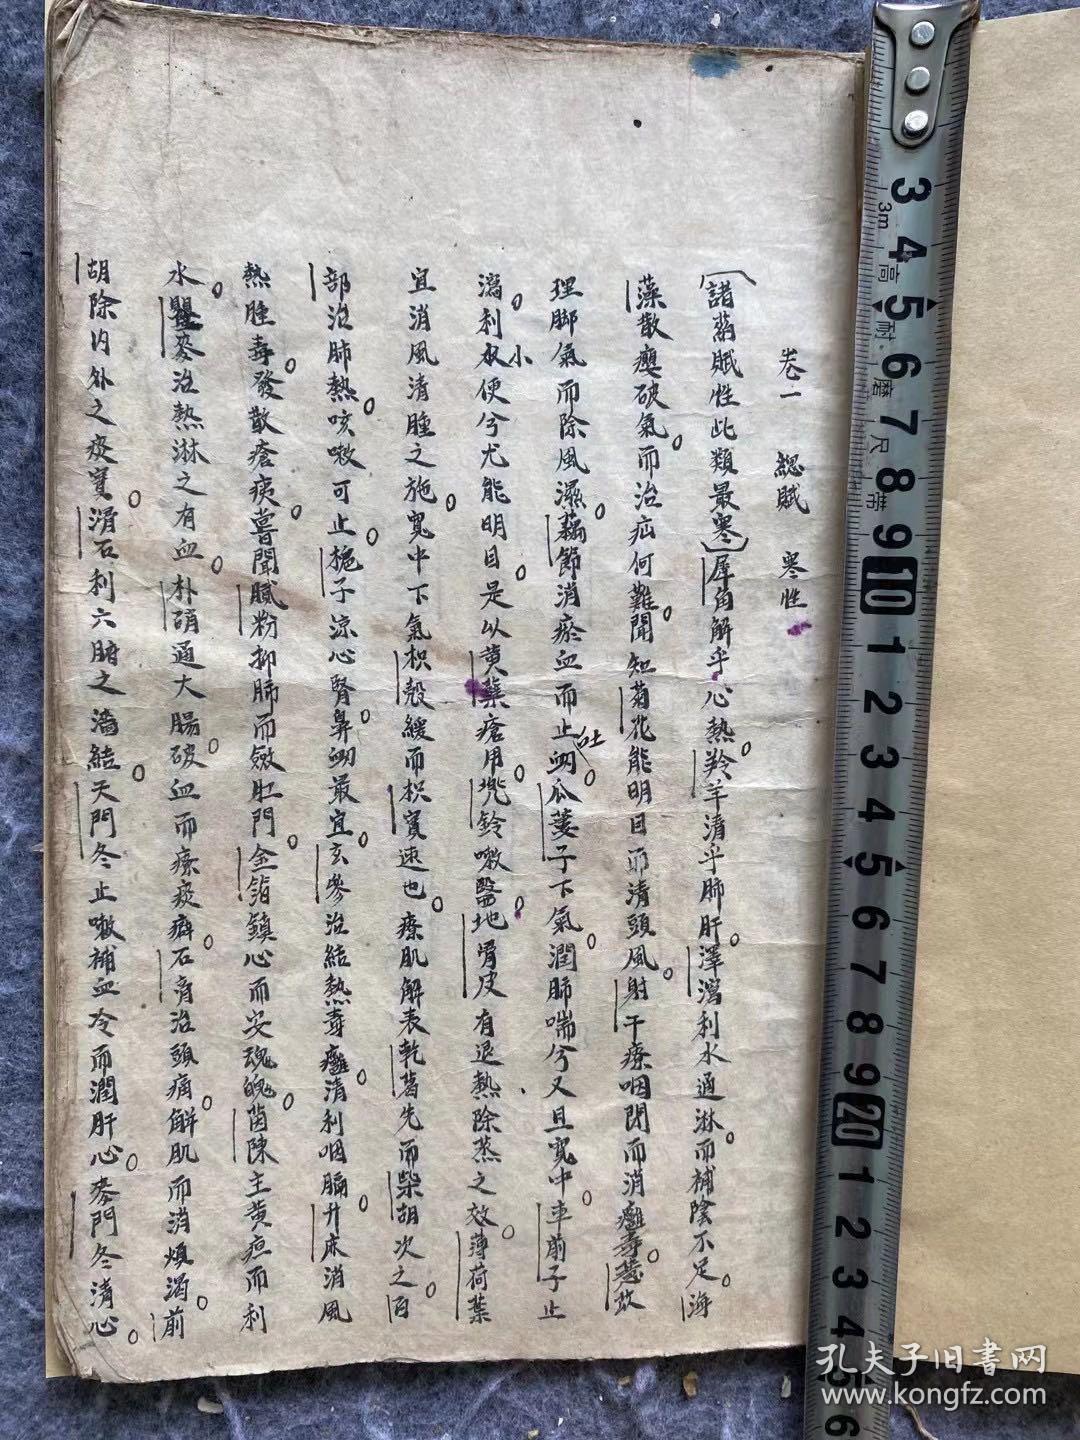 卷一 總賦 寒性
諸藥賦性此類最寒犀角解乎心熱羚羊清乎肺肝澤瀉利水通淋而補陰不足海
藻散癭破氣而治疝何難聞知菊花能明目而清頭風射干療咽閉而消癰毒薏苡
理腳氣而除風濕藕節消瘀血而止吐衂瓜蔞子下氣潤肺喘兮又且寬中車前子止
瀉利小便兮尤能明目是以黄蘗瘡用兜鈴嗽醫地骨皮有退熱除蒸之效薄荷葉
宜消風清腫之施寬中下氣枳殼緩而枳實速也療肌解表乾葛先而柴胡次之百
部治肺熱咳嗽可止梔子涼心腎鼻衂最宜玄參治結熱毒癰清利咽膈升床消風
熱腫毒發散瘡痍嘗聞膩粉抑肺而斂肛門金箔鎮心而安魂魄茵陳主黄疸而利
水瞿麥治熱淋之有血朴硝通大腸破血而療痰癖石膏治頭痛解肌而消煩渴前
胡除内外之痰實滑石利六腑之濇結天門冬止嗽補血冷而潤肝心麥門冬清心
3 4 5 6 7 8 9 10 1 2 3 4 5 6 7 8 9 20 1 2 3 4 5 6
3m 高耐磨尺帶
孔夫子旧書网
www.kongfz.com